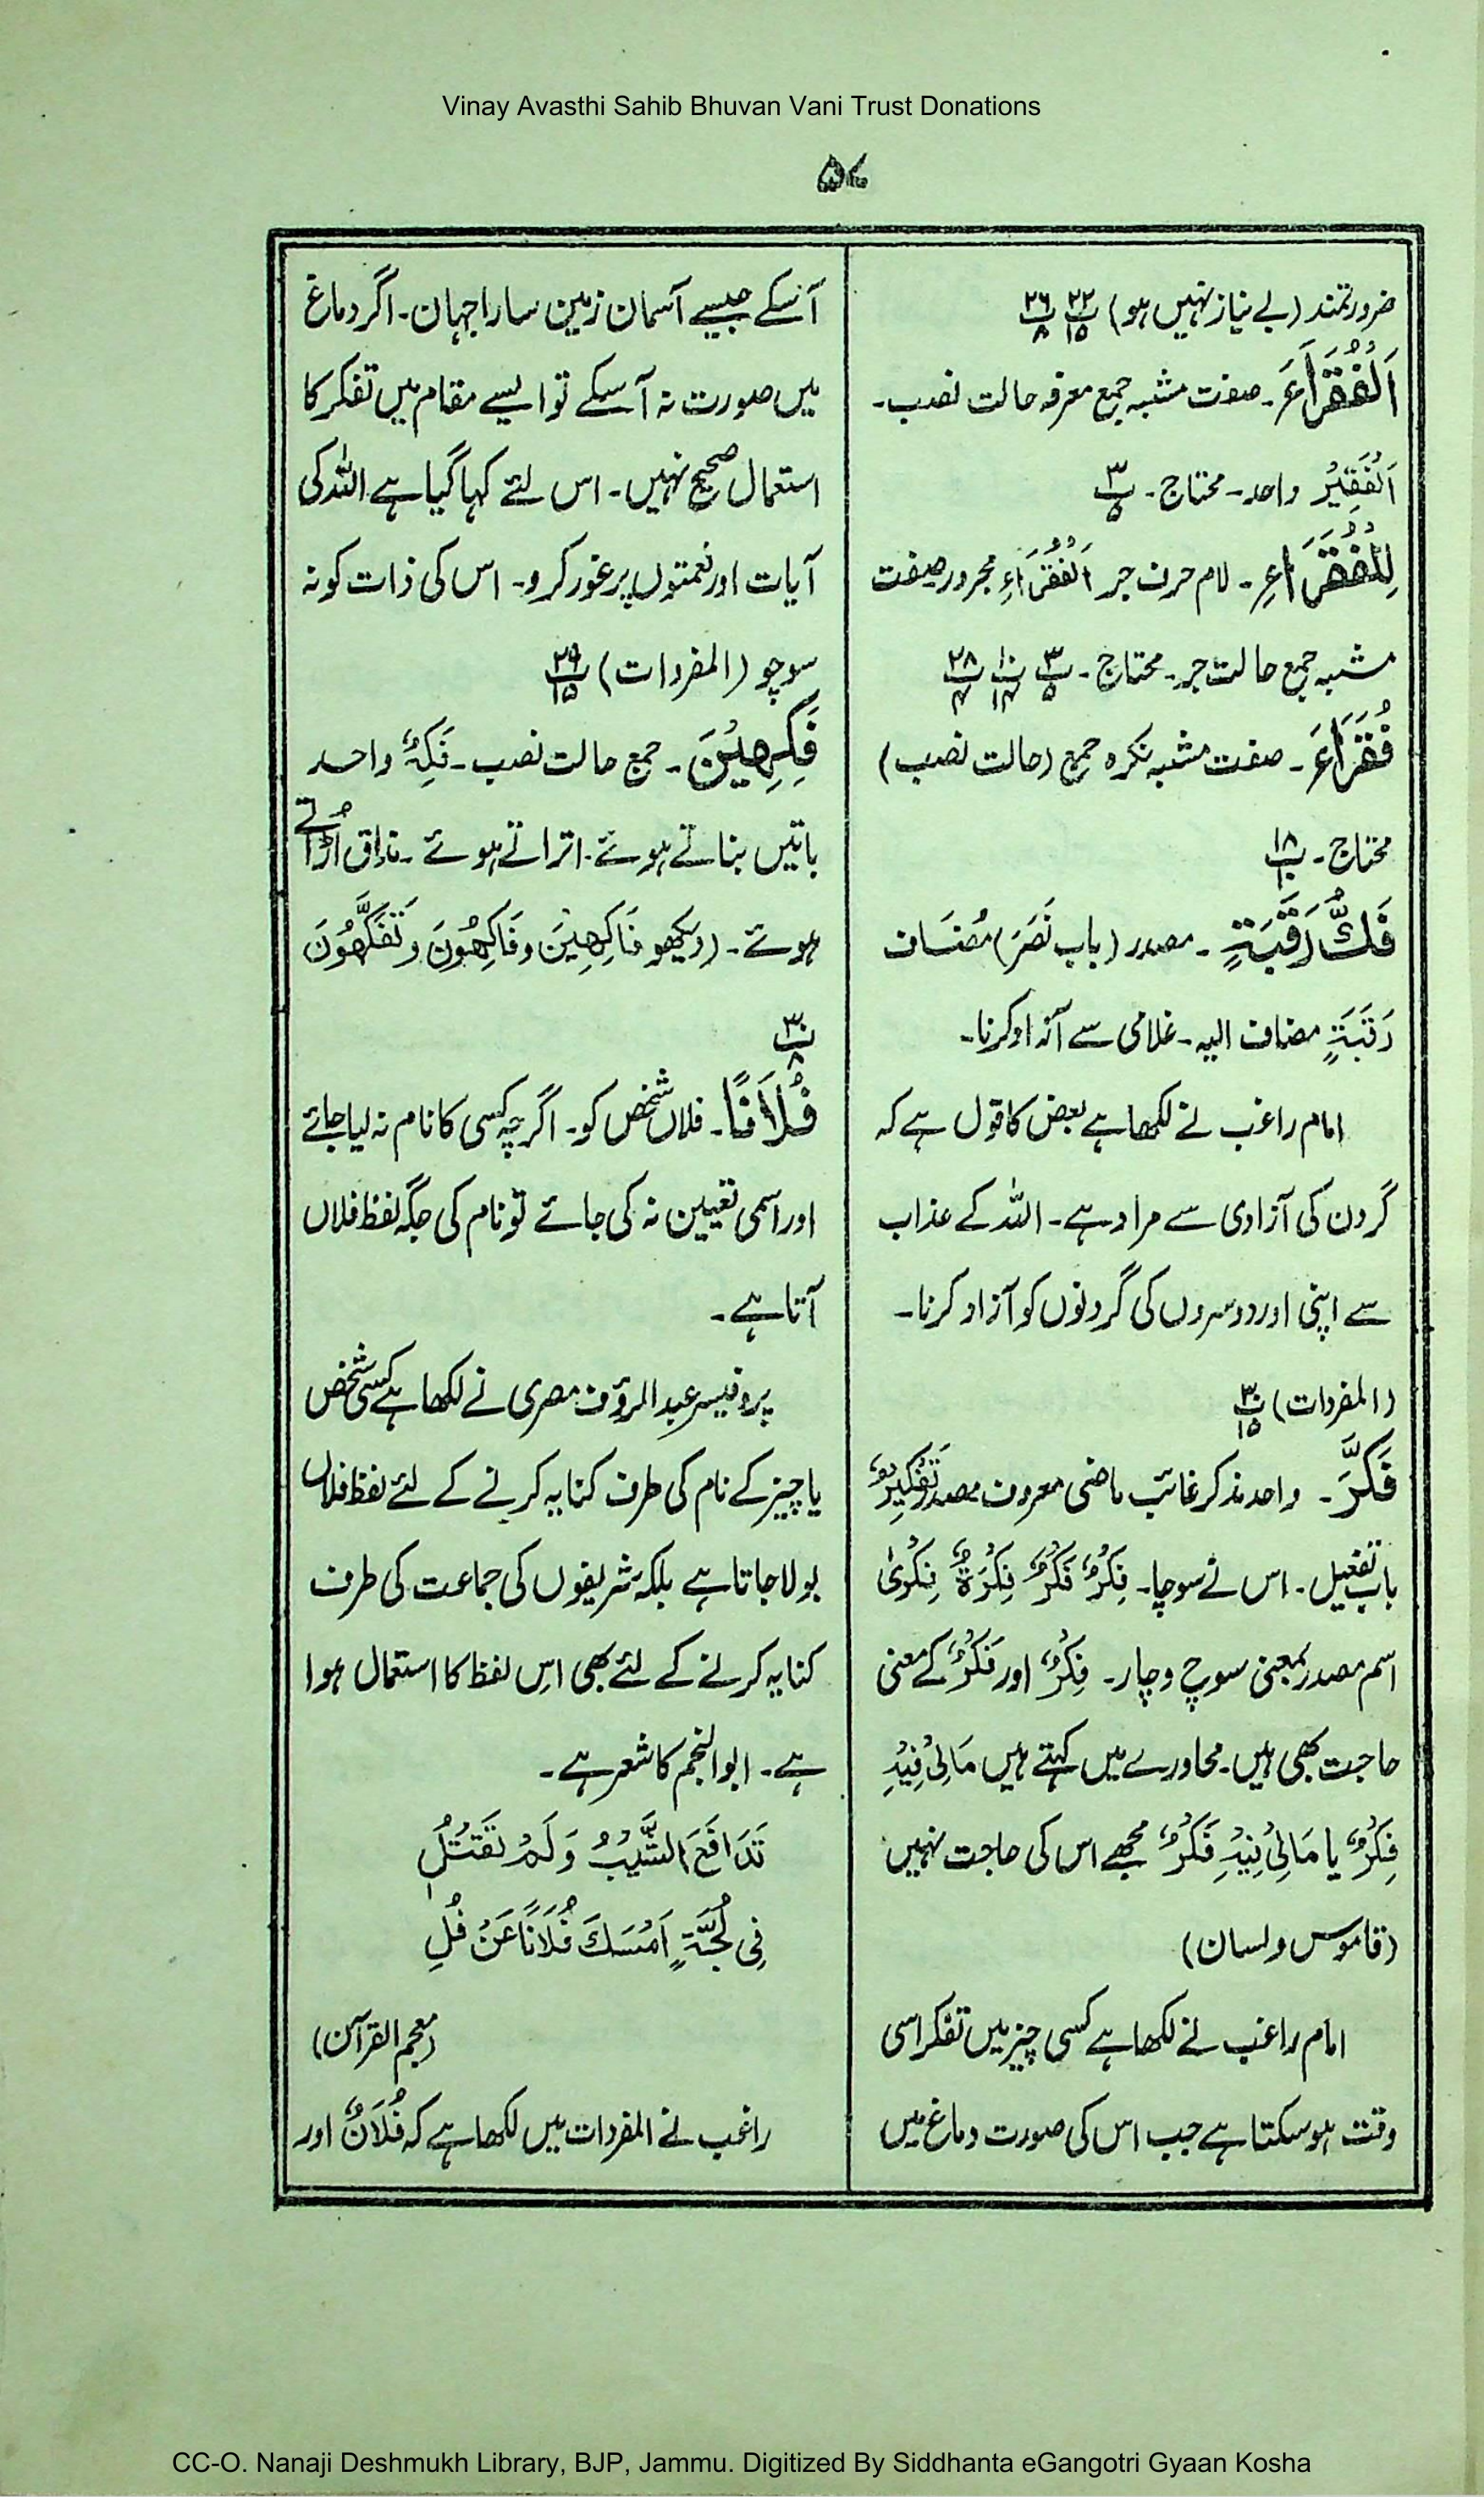 Vinay Avasthi Sahib Bhuvan Vani Trust Donations
۵۷
ضرورتمند (بے نیاز نہیں ہو) پ۲۲/۱۵ پ۲۶/۸
اَلْفُقَرَاءَ۔ صفت مشبہ جمع معرفہ حالت نصب۔
اَلْفَقِیْرُ واحد۔ محتاج۔ پ۳/۵
لِلْفُقَرَاءِ۔ لام حرف جر اَلْفُقَرَاءِ مجرور صفت
مشبہ جمع حالت جر۔ محتاج۔ پ۳/۵ پ۱۰/۱۴ پ۲۸/۴
فُقَرَاءَ۔ صفت مشبہ نکرہ جمع (حالت نصب)
محتاج۔ پ۱۸/۱۰
فَكُّ رَقَبَةٍ۔ مصدر (باب نَصَرَ) مُضَاف
رَقَبَةٍ مضاف الیہ۔ غلامی سے آزاد کرنا۔
امام راغب نے لکھا ہے بعض کا قول ہے کہ
گردن کی آزادی سے مراد ہے۔ اللہ کے عذاب
سے اپنی اور دوسروں کی گردنوں کو آزاد کرنا۔
(المفردات) پ۳۰/۱۵
فَكَّرَ۔ واحد مذکر غائب ماضی معروف مصدر تَفْكِیْرٌ
باب تفعیل۔ اس نے سوچا۔ فِكْرٌ فَكْرٌ فِكْرَةٌ فِكْرٰی
اسم مصدر بمعنی سوچ وچار۔ فِكْرٌ اور فَكْرٌ کے معنی
حاجت بھی ہیں۔ محاورے میں کہتے ہیں مَالِیْ فِیْهِ
فِكْرٌ یا مَالِیْ فِیْهِ فَكْرٌ مجھے اس کی حاجت نہیں
(قاموس و لسان)
امام راغب نے لکھا ہے کسی چیز میں تفکر اسی
وقت ہو سکتا ہے جب اس کی صورت دماغ میں
آسکے جیسے آسمان زمین سارا جہان۔ اگر دماغ
میں صورت نہ آسکے تو ایسے مقام میں تفکر کا
استعمال صحیح نہیں۔ اس لئے کہا گیا ہے اللہ کی
آیات اور نعمتوں پر غور کرو۔ اس کی ذات کو نہ
سوچو (المفردات) پ۲۹/۱۵
فَكِهِیْنَ۔ جمع حالت نصب۔ فَكِهٌ واحد
باتیں بناتے ہوئے۔ اتراتے ہوئے۔ مذاق اُڑاتے
ہوئے۔ (دیکھو فَاكِهِیْنَ و فَاكِهُوْنَ و تَفَكَّهُوْنَ
پ۳۰/۸
فُلَانًا۔ فلاں شخص کو۔ اگرچہ کسی کا نام نہ لیا جائے
اور اسمی تعیین نہ کی جائے تو نام کی جگہ لفظ فلاں
آتا ہے۔
پروفیسر عبدالرؤف مصری نے لکھا ہے کسی شخص
یا چیز کے نام کی طرف کنایہ کرنے کے لئے لفظ فلاں
بولا جاتا ہے بلکہ شریفوں کی جماعت کی طرف
کنایہ کرنے کے لئے بھی اس لفظ کا استعمال ہوا
ہے۔ ابوالنجم کا شعر ہے۔
تَدَافَعَ الشَّیْبُ وَلَمْ تَقْتُلُ
فِی لُجَّةٍ اَمْسَكَ فُلَانًا عَنْ فُلِ
(معجم القرآن)
راغب نے المفردات میں لکھا ہے کہ فُلَانٌ اور
CC-O. Nanaji Deshmukh Library, BJP, Jammu. Digitized By Siddhanta eGangotri Gyaan Kosha